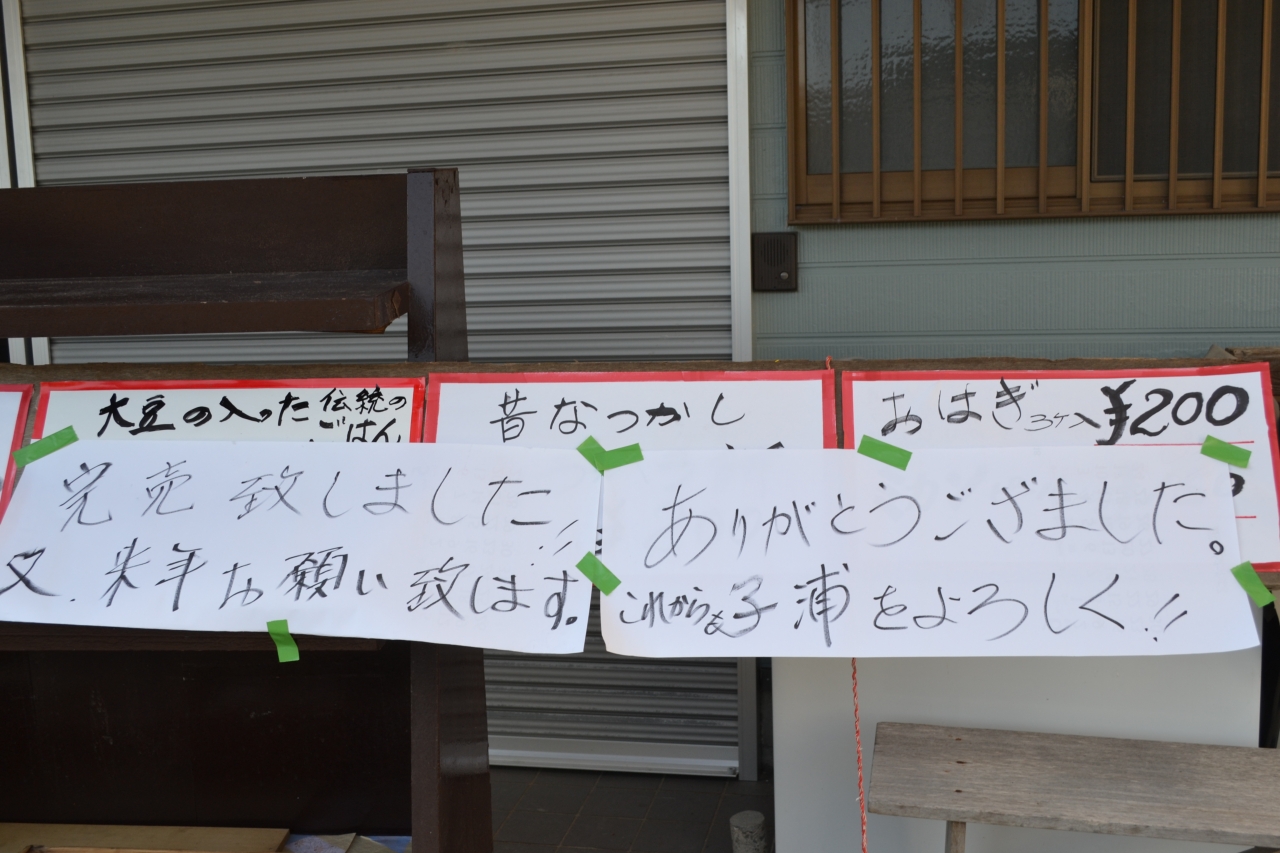 大豆の入った伝統の
ごはん
昔なつかし
おはぎ3ケ入¥200
完売致しました!!
又、来年お願い致します。
ありがとうございました。
これからも子浦をよろしく!!